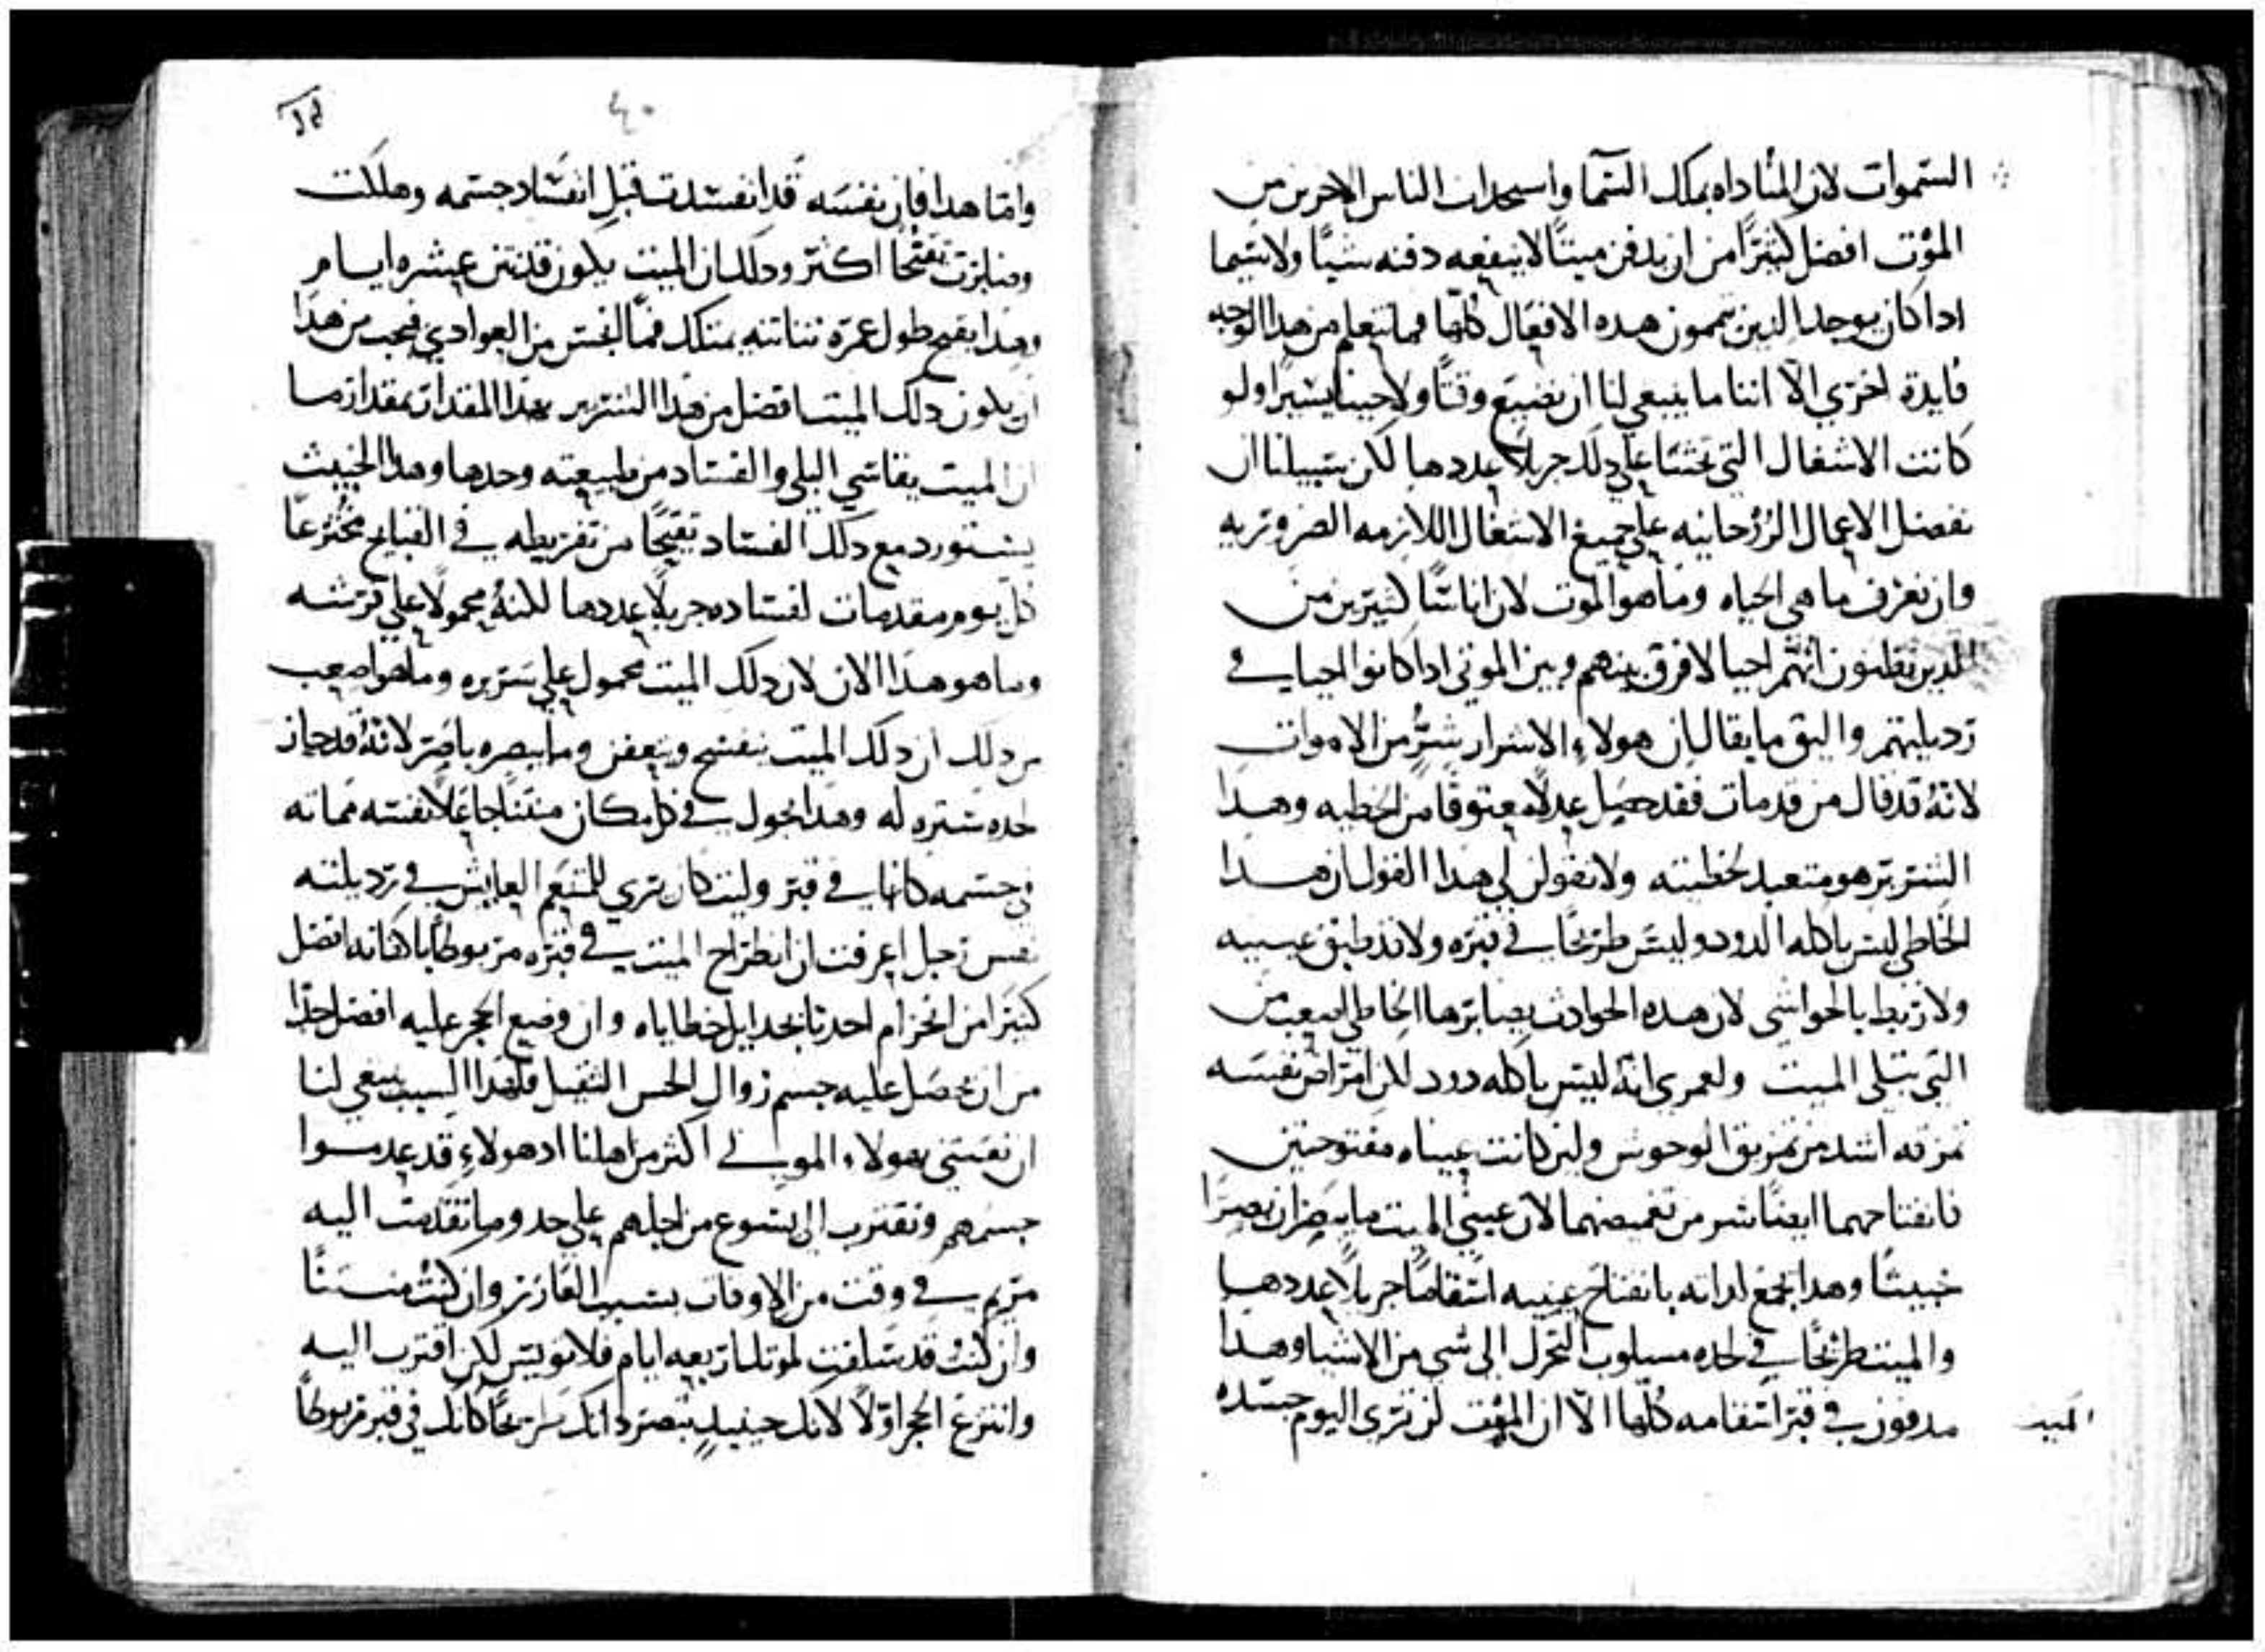 السموات لان المناداه بملك السما واسحدات الناس الاخرين من
الموت افضل كثيرًا من ان يدفن ميتًا لا ينفعه دفنه شيًا ولا سيما
ادا كان يوجد الدين يتممون هده الافعال كلها فما نتعلم من هدا الوجه
فايدة اخري الا اننا ما ينبغي لنا ان نضيع وقتًا ولا حينا يسيرًا ولو
كانت الاشغال التي تحثنا علي دلك جزيلا عددها لكن سبيلنا ان
نفضل الاعمال الروحانيه علي جميع الاشغال اللازمه الضروريه
وان نعرف ما هي الحياه وما هو الموت لان اناسًا كثيرين من
الدين تظنون انهم احيا لا فرق بينهم وبين الموتي ادا كانوا احيا في
رديلتهم واليق ما يقال ان هولاء الاشرار شرٌ من الاموات
لانهُ قد قال من قد مات فقد حصل عدلاً معتوقًا من الخطيه وهدا
الشرير هو متعبد لخطيته ولا تقولن لي هدا القول ان هدا
الخاطي ليس ياكله الدود وليس طريحًا في قبره ولا قد طبق عينيه
ولا ربط بالحواشي لان هده الحوادث يصابرها الخاطي اصعب من
التي تبلي الميت ولعمري انهُ ليس ياكله دود لكن امراض نفسه
تمزقه اشد من تمزيق الوحوش ولين كانت عيناه مفتوحتين
فانفتاحهما ايضًا شر من تغميضهما لان عيني الميت ما يبصران بصرًا
خبيثًا وهدا يجمع لداته بانفتاح عينيه اسقامًا جزيلاً عددها
والميت طريحًا في لحده مسلوب التحرك الي شي من الاشيا وهدا
مدفون في قبر اسقامه كلها الا ان الموت لن تري اليوم جسده
الميت
٤٠
واما هدا فان نفسه قد انفسدت قبل انفساد جسمه وهلكت
وصابرت تفتحًا اكثر ودلك ان الميت يكون قد نتن عشره ايام
وهدا بقبح طول عمره نتانته فما الفتن من العوادي فيجب من هدا
ان يكون دلك الميت افضل من هدا الشرير هدا المقدار بمقدار ما
ان الميت يقاسي البلي والفساد من طبيعته وحدها وهدا الخبيث
يستورد مع دلك الفساد تقيحًا من تفريطه في القبايح مخترعًا
كل يوم مقدمات لفساده جزيلاً عددها للنهُ محمولاً علي فرشه
وما هو هدا الان لان دلك الميت محمول علي سريره وما هو اصعب
من دلك ان دلك الميت يتفسح ويتعفن وما يبصره باصر لانهُ قد حاز
لحده ستره له وهدا يجول في كل مكان منتنًا جاعلاً نفسه مماته
في جسمه كانها في قبر وليت كان تري للمتنعم العايش في رديلته
نفس رجل لعرفت ان انطراح الميت في قبره مربوطًا باكفانه افضل
كثيرًا من انحزام احدنا بجدايل خطاياه وان وضع الحجر عليه افضل جدًا
من ان يحصل عليه جسم زوال الحس الثقيل فلهدا السبب ينبغي لنا
ان نعتني بهولاء الموتي اكثر من اهلنا اد هولاءِ قد عدموا
حسهم ونقترب الي يسوع من اجلهم علي حد وما تقدمت اليه
مريم في وقت من الاوقات بسبب العازر وان كنت منتنًا
وان كنت قد سلفت لموتك اربعه ايام فلا تويس لكن اقترب اليه
وانتزع الحجر اولاً لانك حينيدٍ تبصر دانك طريحًا كانك في قبر مربوطًا